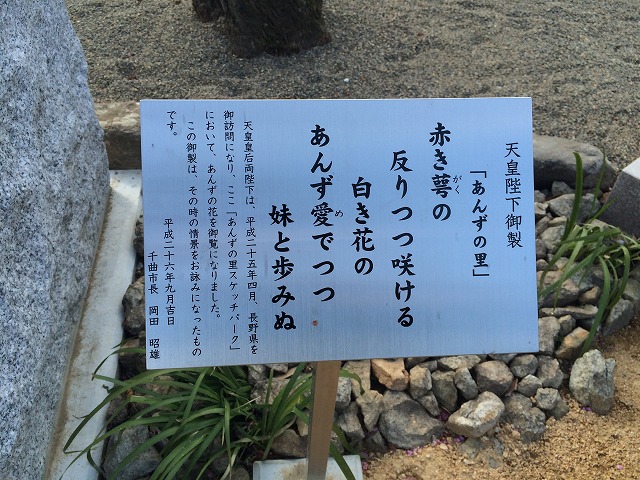 天皇陛下御製
「あんずの里」
赤き萼の
がく
反りつつ咲ける
白き花の
あんず愛でつつ
め
妹と歩みぬ
天皇皇后両陛下は、平成二十五年四月、長野県を
御訪問になり、ここ「あんずの里スケッチパーク」
において、あんずの花を御覧になりました。
この御製は、その時の情景をお詠みになったもの
です。
平成二十六年九月吉日
千曲市長 岡田 昭雄